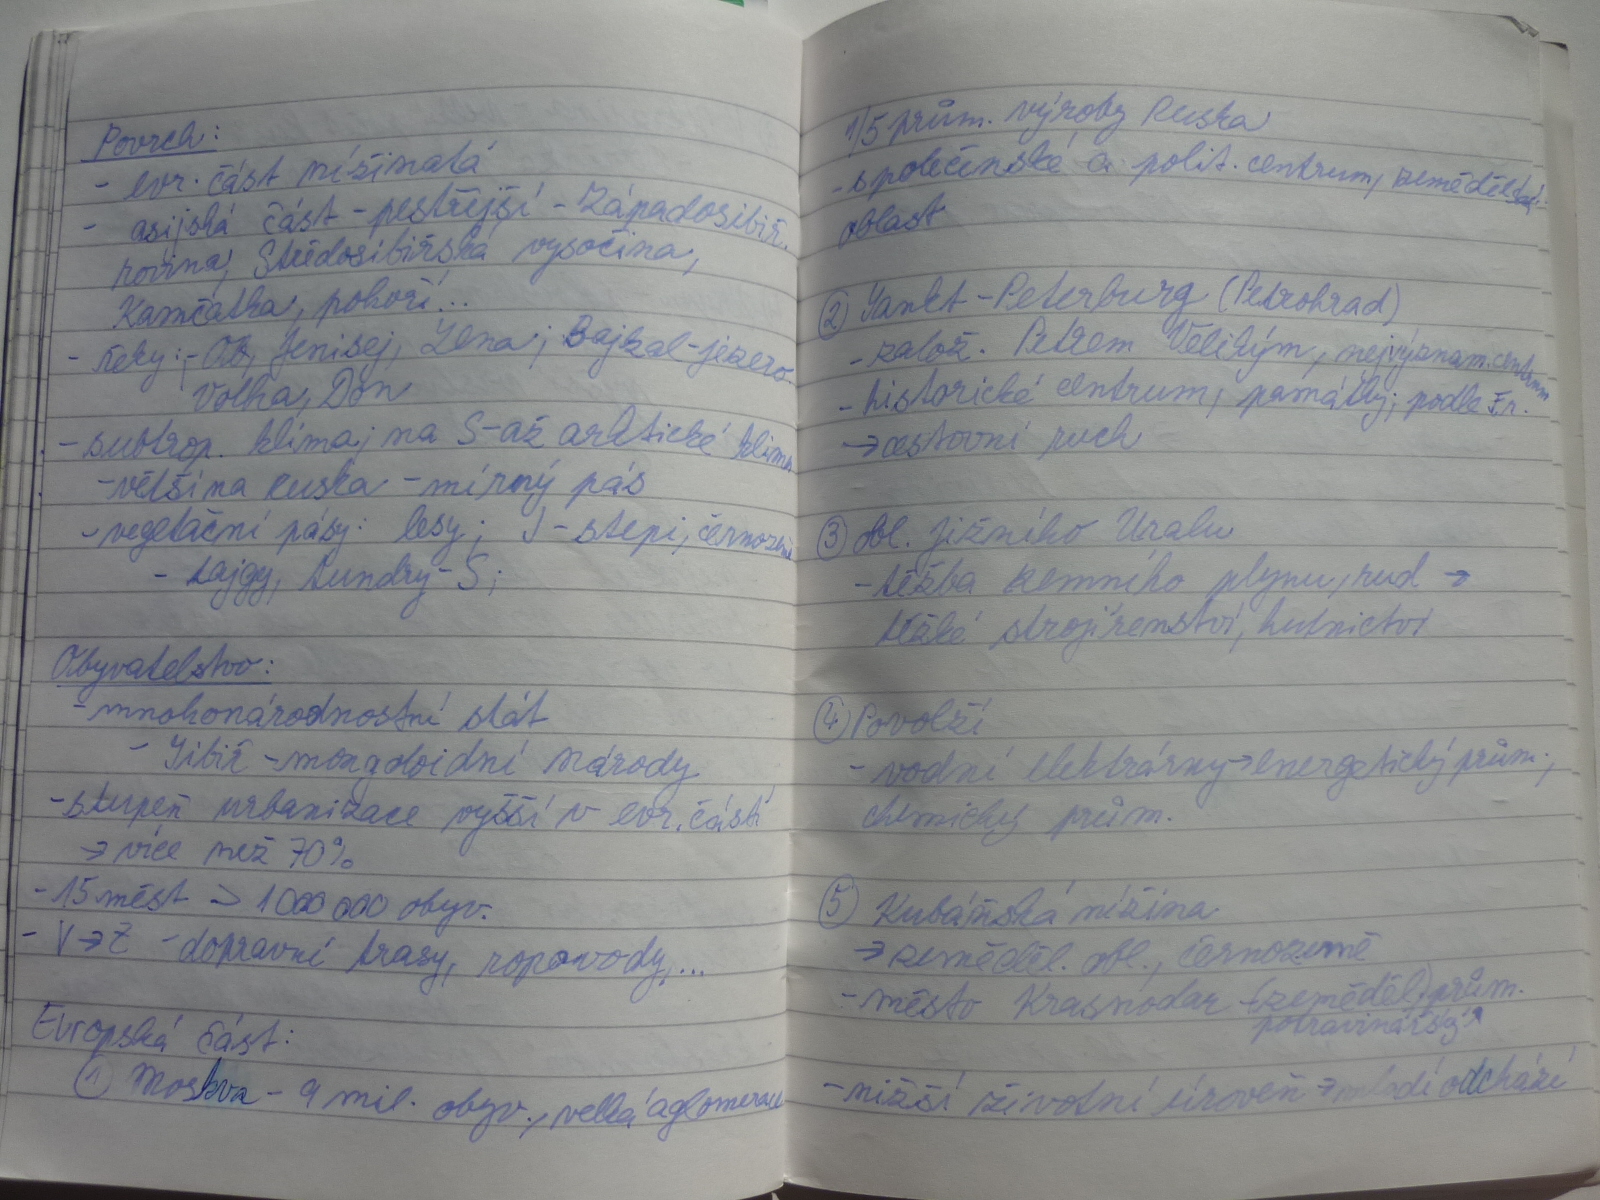 Povrch:
- evr. část nížinatá
- asijská část - pestřejší - Západosibiř.
rovina, Středosibiřská vysočina,
Kamčatka, pohoří...
- řeky: - Ob, Jenisej, Lena; Bajkal - jezero
Volha, Don
- subtrop. klima; na S - až arktické klima
- většina Ruska - mírný pás
- vegetační pásy: lesy; J - stepi, černozemě
- tajgy, tundry - S;
Obyvatelstvo:
- mnohonárodnostní stát
- Sibiř - mongoloidní národy
- stupeň urbanizace vyšší v evr. části
→ více než 70%
- 15 měst → 1 000 000 obyv.
- V → Z - dopravní trasy, ropovody,...
Evropská část:
① Moskva - 9 mil. obyv., velká aglomerace
1/5 prům. výroby Ruska
- společenské a polit. centrum, zemědělská
oblast
② Sankt - Peterburg (Petrohrad)
- založ. Petrem Velikým, nejvýznam. centrum
- historické centrum, památky; podle Fr.
→ cestovní ruch
③ obl. jižního Uralu
- těžba zemního plynu, rud →
těžké strojírenství, hutnictví
④ Povolží
- vodní elektrárny → energetický prům.,
chemický prům.
⑤ Kubáňská nížina
→ zeměděl. obl., černozemě
- město Krasnodar - (zeměděl.) prům.
potravinářský
- nižší životní úroveň → mladí odchází